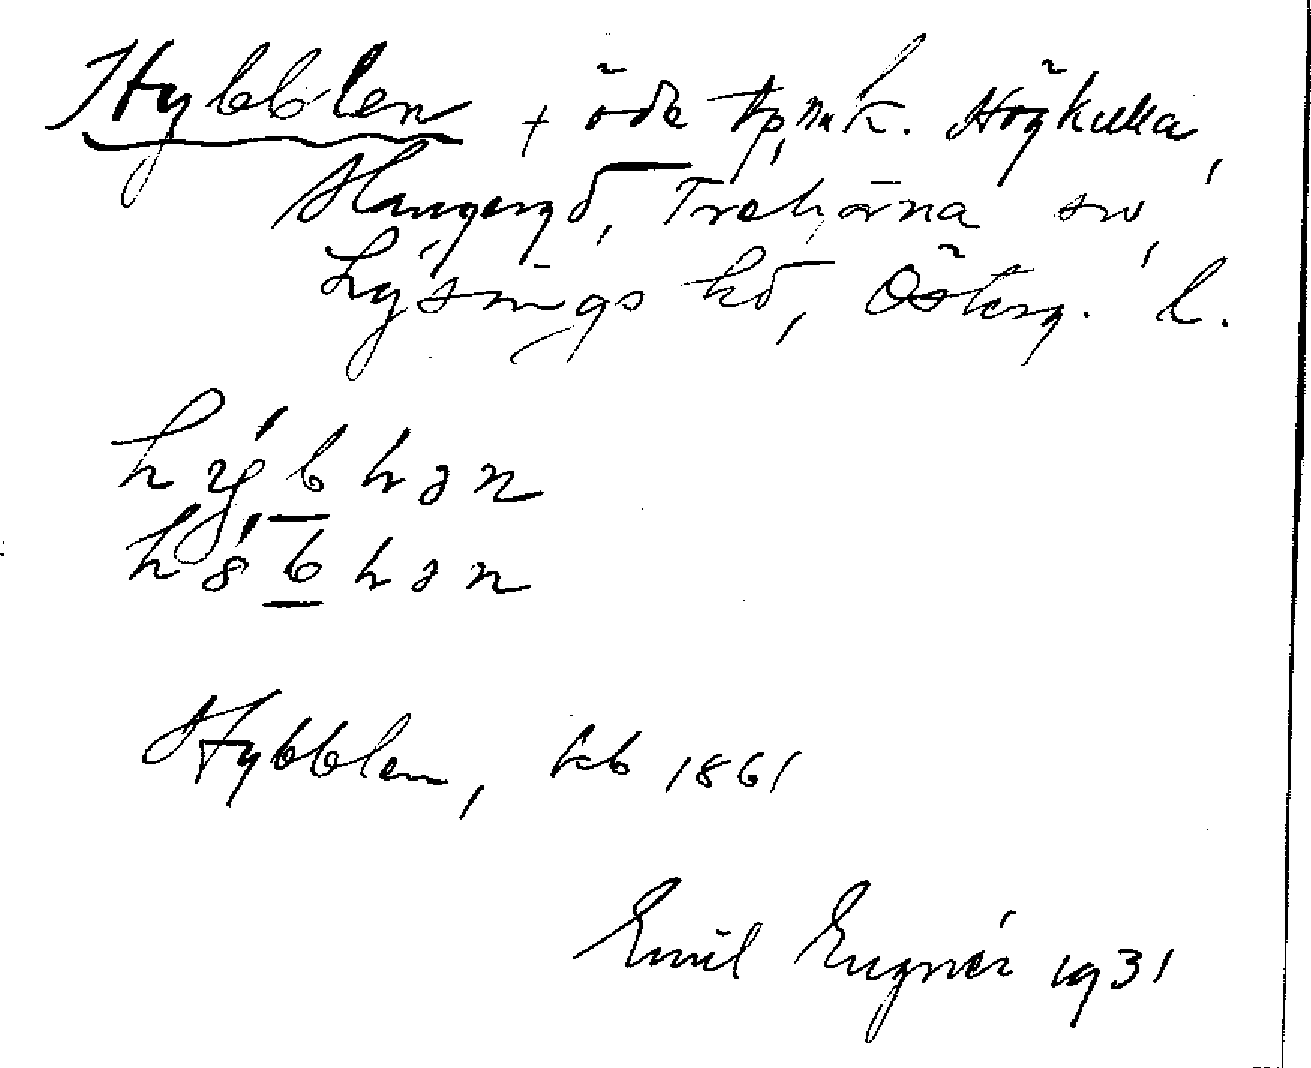 Hybblen + öde tp, nuk. Högkulla,
Hangergd, Trehörna sn,
Lysings hd, Österg. l.
hýbḷən
hǿbḷən
Hybblen, kb 1861
Emil Engnér 1931